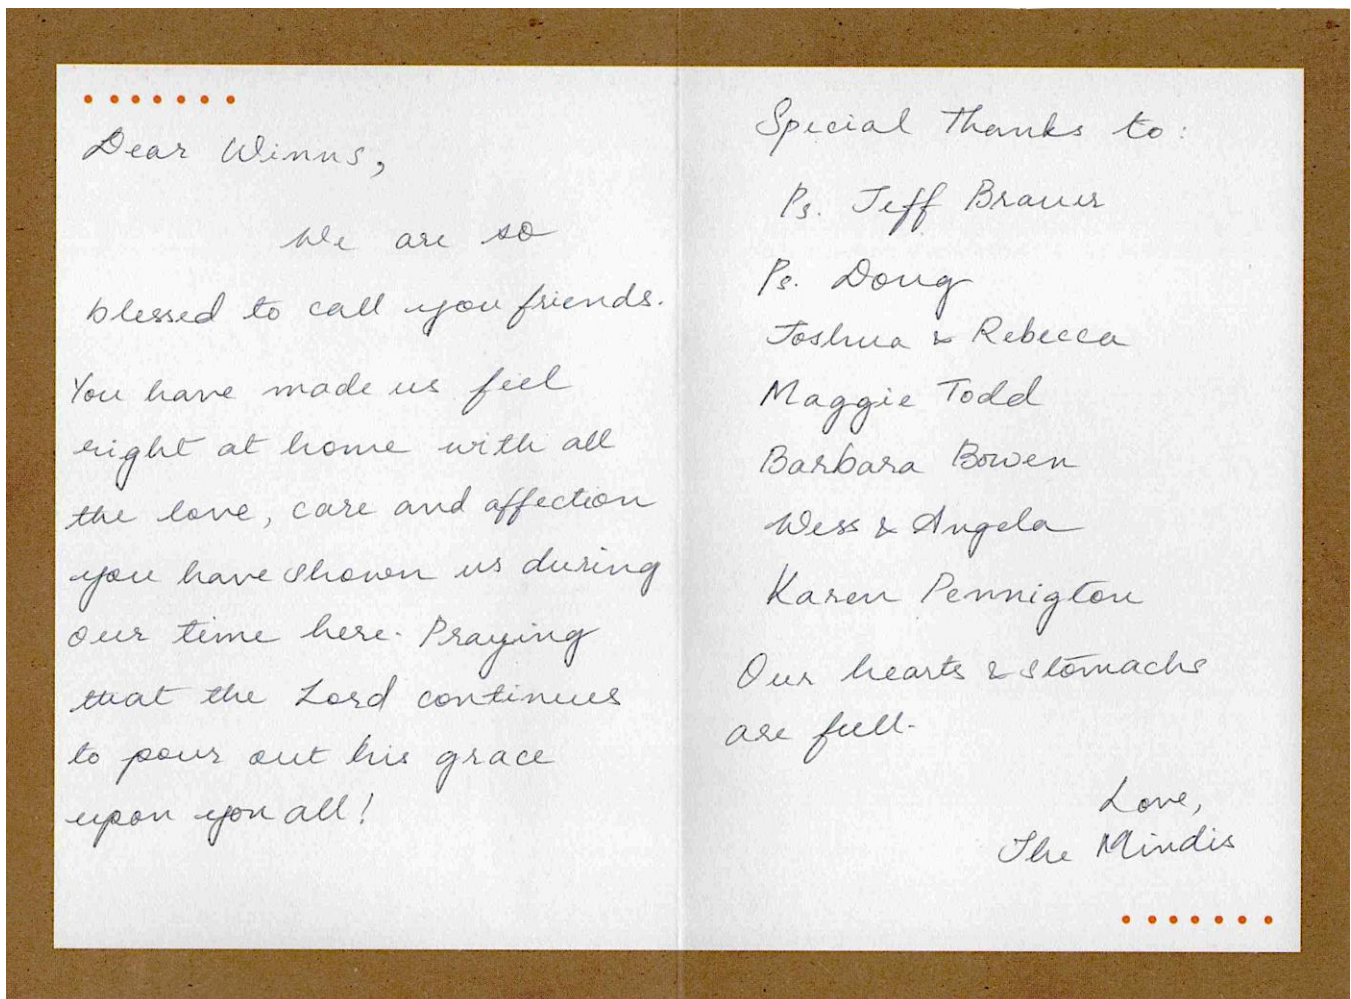 Dear Winns,
We are so
blessed to call you friends.
You have made us feel
right at home with all
the love, care and affection
you have shown us during
our time here. Praying
that the Lord continues
to pour out his grace
upon you all!
Special Thanks to:
Ps. Jeff Brauer
Ps. Doug
Joshua & Rebecca
Maggie Todd
Barbara Bowen
Wess & Angela
Karen Pennigton
Our hearts & stomachs
are full.
Love,
The Mindis